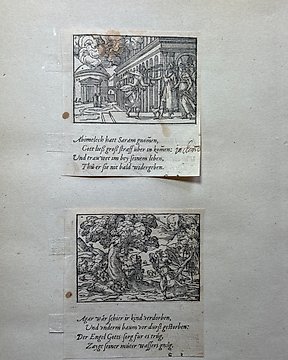 Abimelech hatt Saram gnom̄en,
Gott ließ groß straff uber in kom̄en:
Und trauwet im bey seinem leben,
Thü er sie nit bald widergeben.
Agar wär schier ir kind verdorben,
Und underm baum vor durst gestorben:
Der Engel Gotts sorg für es trüg,
Zaigt seiner müter wassers gnüg.